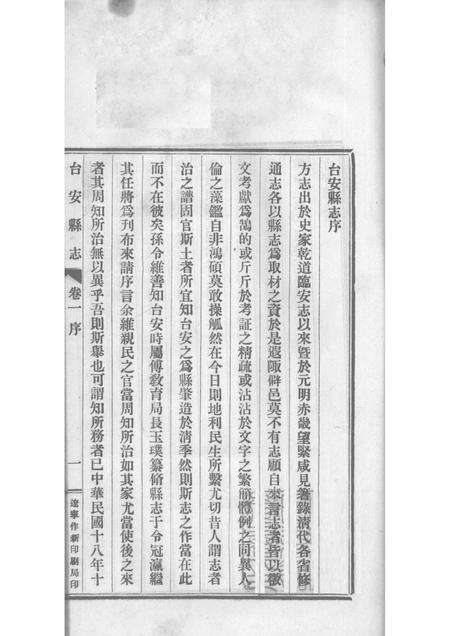 台安縣志序
方志出於史家乾道臨安志以來曁於元明赤畿望緊咸見箸錄清代各省修
通志各以縣志爲取材之資於是遐陬僻邑莫不有志顧自來言志者皆以徵
文考獻爲鵠的或斤斤於考証之精疏或沾沾於文字之繁簡體例之同異人
倫之藻鑑自非鴻碩莫敢操觚然在今日則地利民生所繫尤切昔人謂志者
治之譜固官斯土者所宜知台安之爲縣肇造於清季然則斯志之作當在此
而不在彼矣孫令維善知台安時屬傅敎育局長玉璞纂脩縣志于令冠瀛繼
其任將爲刋布來請序言余維親民之官當周知所治如其家尤當使後之來
者其周知所治無以異乎吾則斯舉也可謂知所務者已中華民國十八年十
台安縣志 卷一 序 一 遼寧作新印刷局印